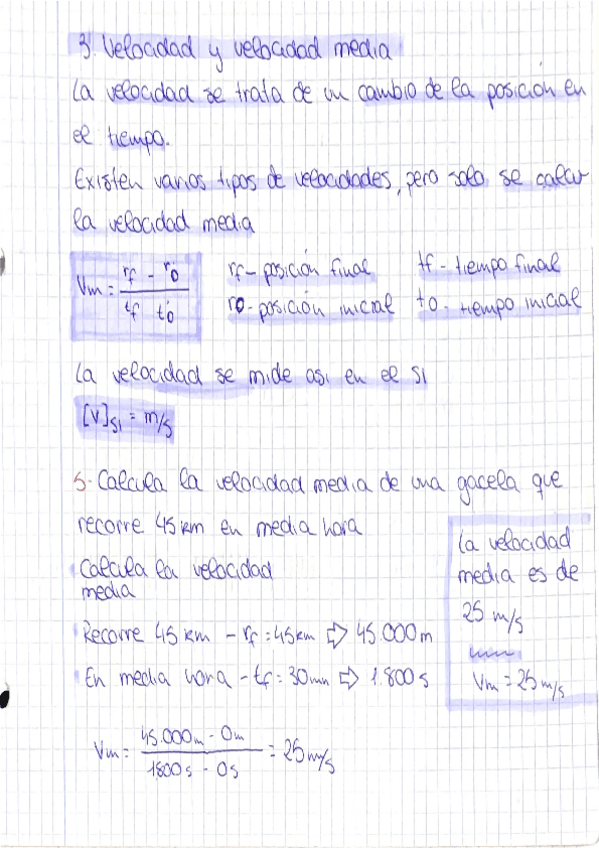 3. Velocidad y velocidad media
La velocidad se trata de un cambio de la posición en
el tiempo.
Existen varios tipos de velocidades, pero solo se calcular
la velocidad media
Vm = rf - r0 / tf t0
rf - posición final
tf - tiempo final
r0 - posición inicial
t0 - tiempo inicial
La velocidad se mide asi en el SI
[V]SI = m/s
5. Calcula la velocidad media de una gacela que
recorre 45 km en media hora
Calcula la velocidad
media
Recorre 45 km - rf = 45 km ⇨ 45.000m
En media hora - tf = 30 mn ⇨ 1.800 s
Vm = 45.000m - 0m / 1800s - 0s = 25 m/s
La velocidad
media es de
25 m/s
Vm = 25 m/s